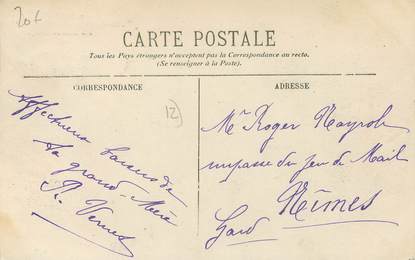 20f
CARTE POSTALE
Tous les Pays étrangers n'acceptent pas la Correspondance au recto.
(Se renseigner à la Poste).
CORRESPONDANCE
ADRESSE
12
Affectueux baisers de
ta grand-Mère
R.
Mr Roger
impasse du Jeu de Mail
Nîmes
Gard